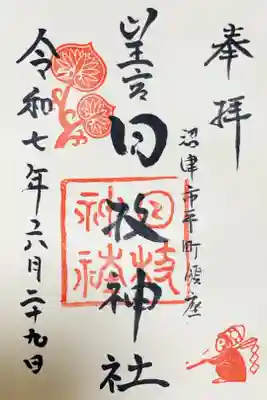 奉拝
沼津市平町鎮座
山王宮 日枝神社
日枝神社
令和七年六月二十九日